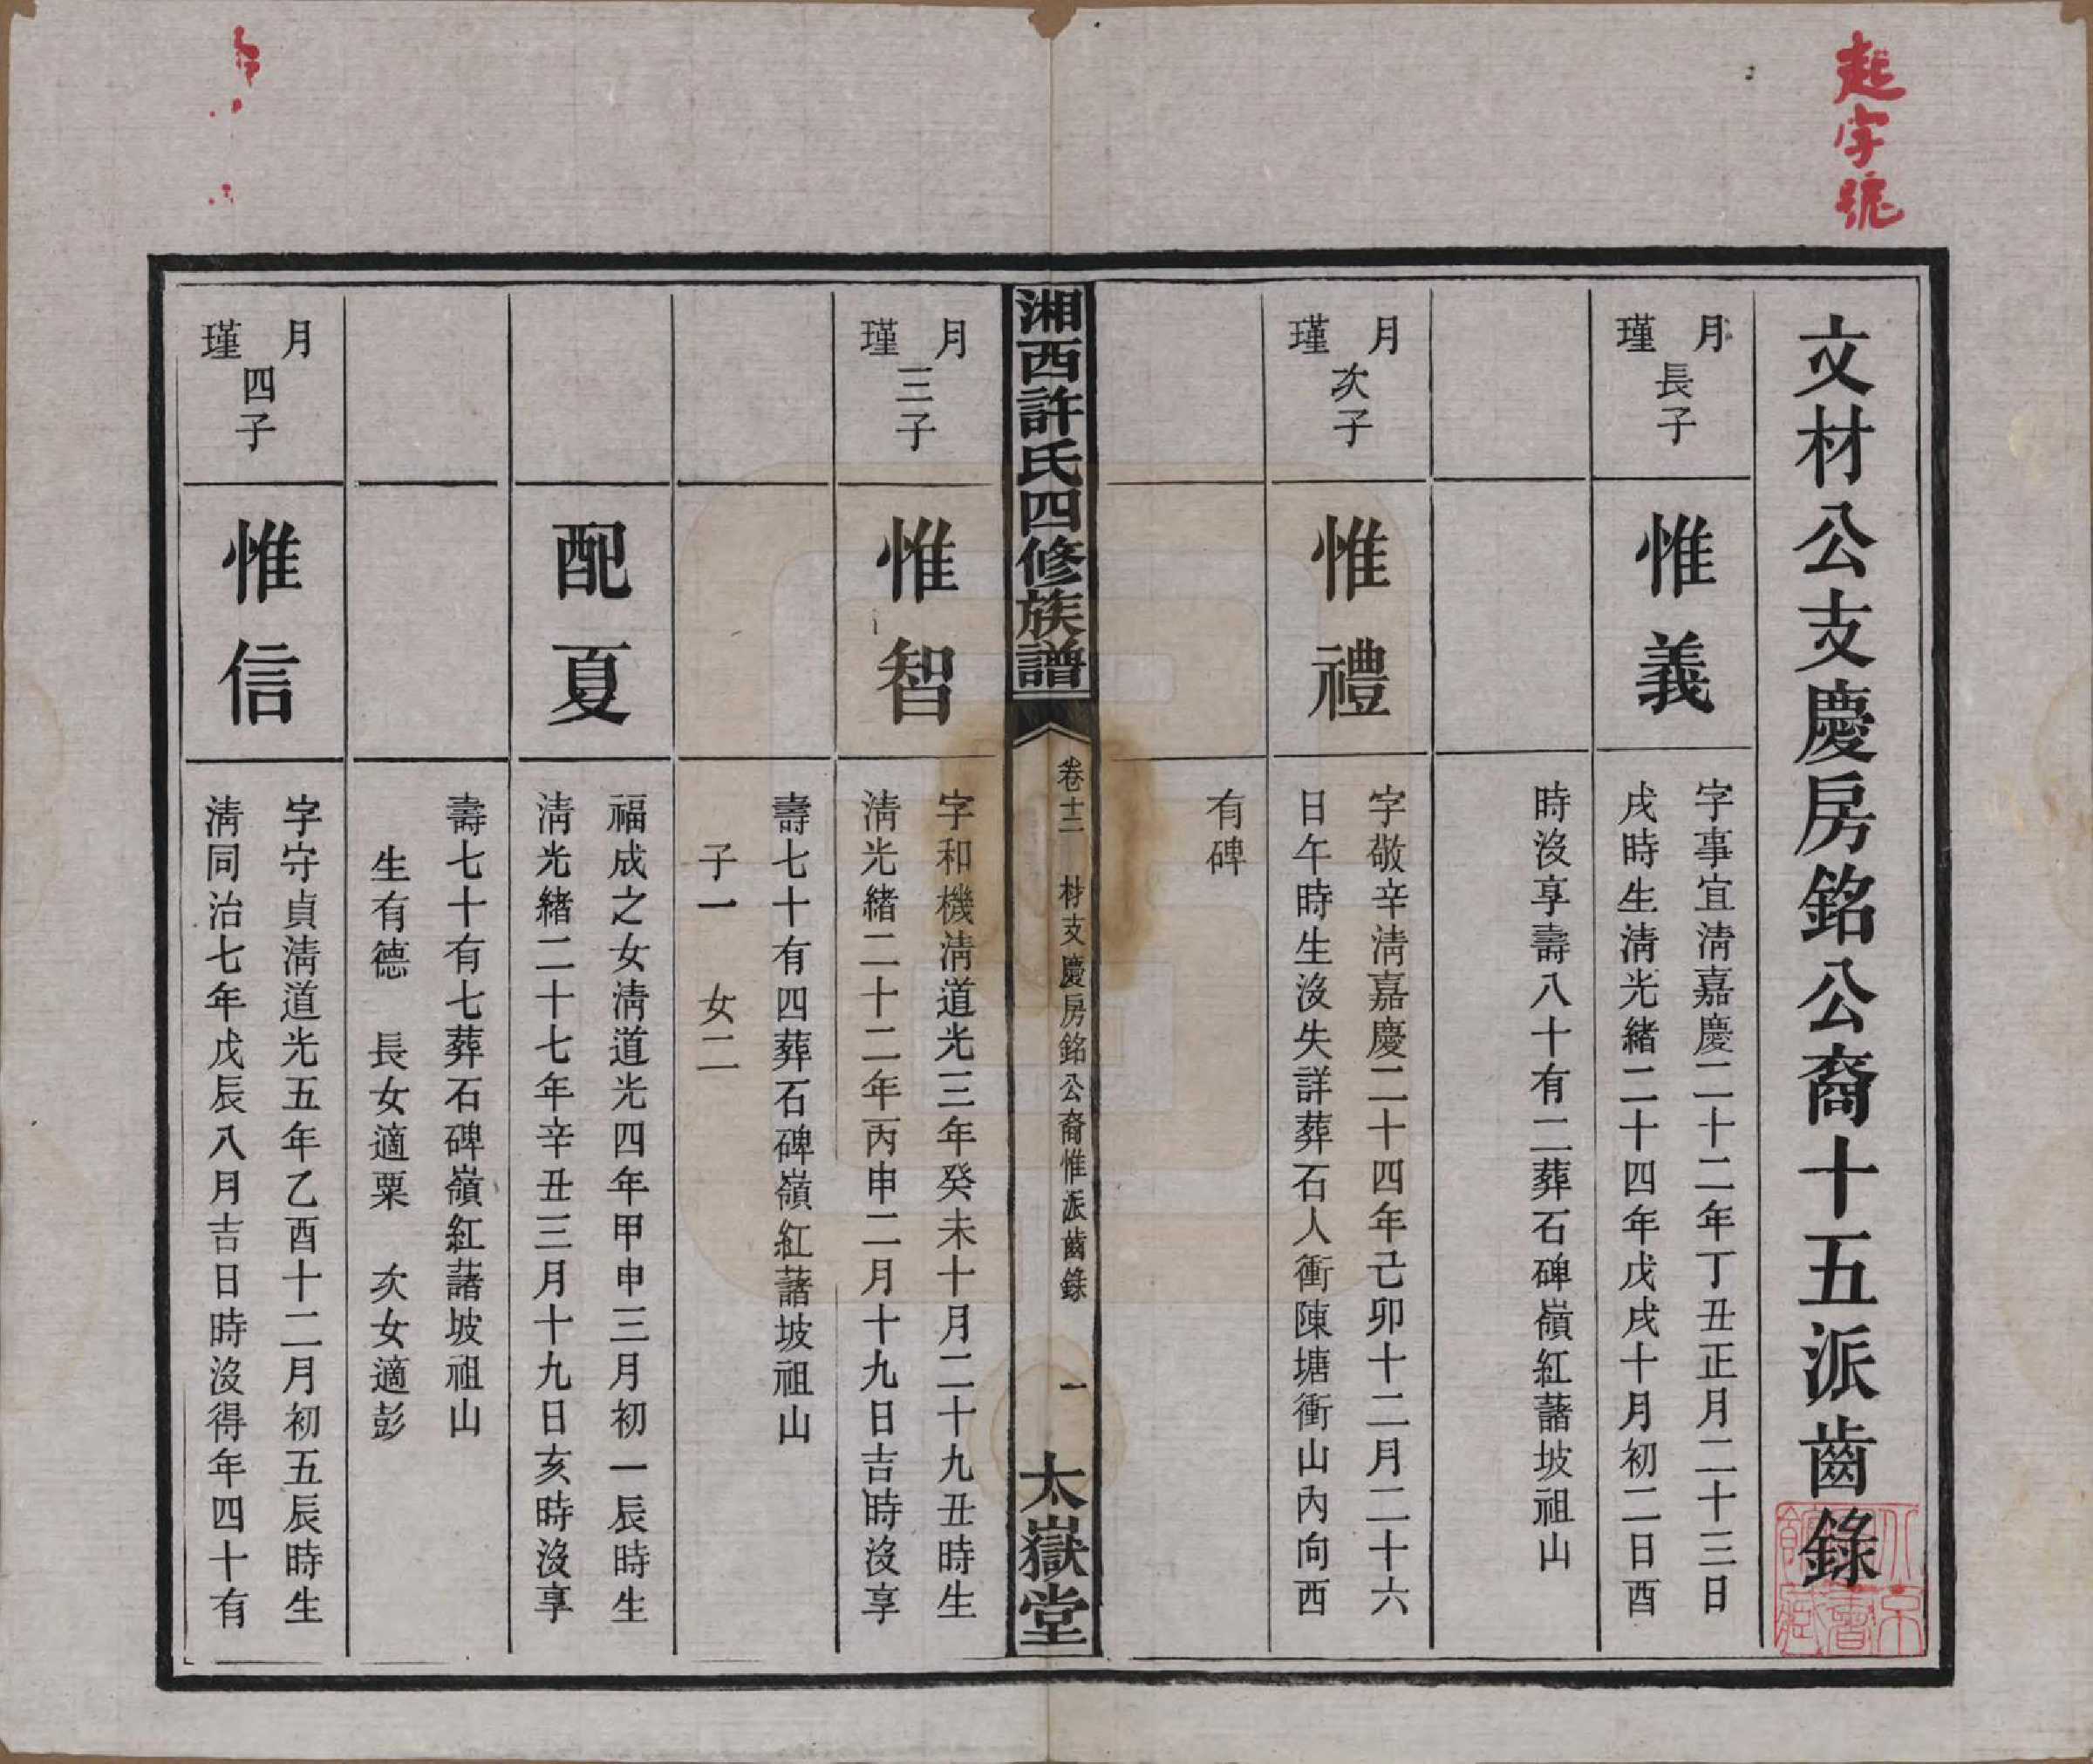 起字號
文材公支慶房銘公裔十五派齒錄
月瑾長子
惟義
字事宜淸嘉慶二十二年丁丑正月二十三日
戌時生淸光緖二十四年戊戌十月初二日酉
時沒享壽八十有二葬石碑嶺紅藷坡祖山
月瑾次子
惟禮
字敬辛淸嘉慶二十四年己卯十二月二十六
日午時生沒失詳葬石人衝陳塘衝山內向西
有碑
湘西許氏四修族譜
卷十二 材支慶房銘公裔惟派齒錄 一
太嶽堂
月瑾三子
惟智
字和機淸道光三年癸未十月二十九丑時生
淸光緖二十二年丙申二月十九日吉時沒享
壽七十有四葬石碑嶺紅藷坡祖山
子一 女二
配夏
福成之女淸道光四年甲申三月初一辰時生
淸光緖二十七年辛丑三月十九日亥時沒享
壽七十有七葬石碑嶺紅藷坡祖山
生有德 長女適粟 次女適彭
月瑾四子
惟信
字守貞淸道光五年乙酉十二月初五辰時生
淸同治七年戊辰八月吉日時沒得年四十有